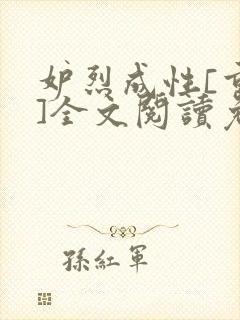 妒烈成性[重
]全文閱讀老
孫紅軍